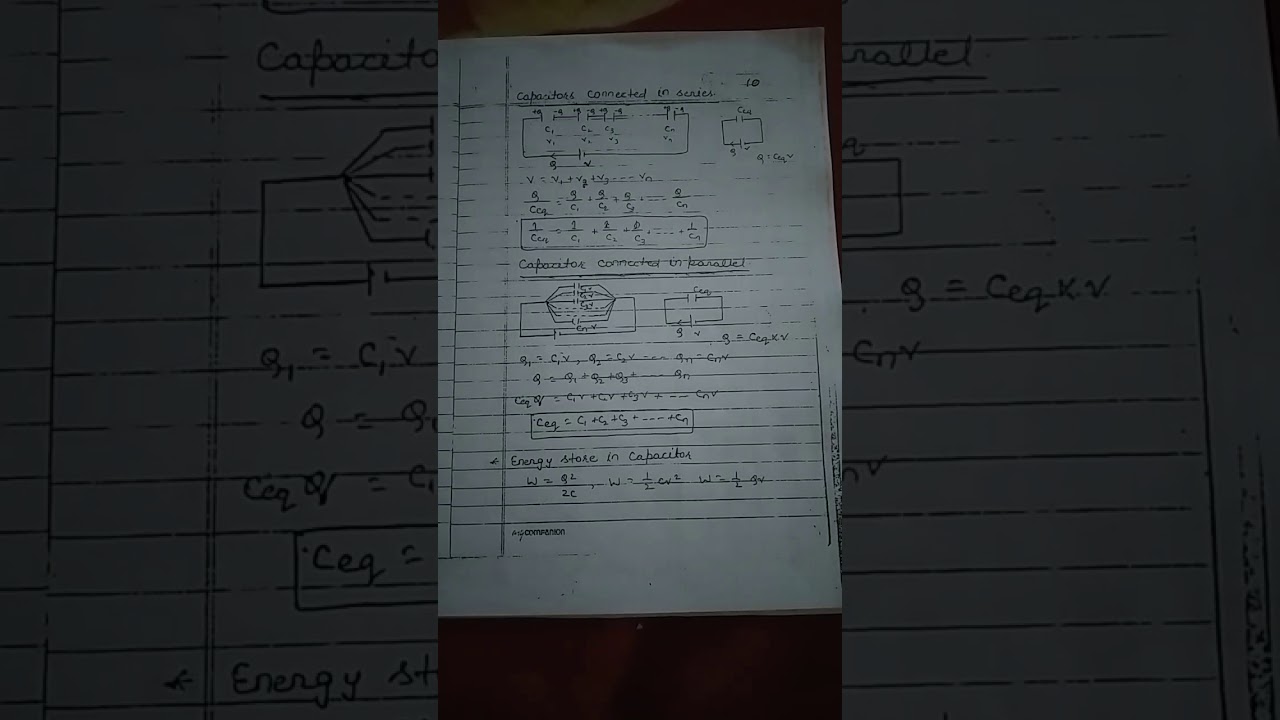 10
Capacitors connected in series.
+Q -Q +Q -Q +Q -Q +Q -Q
C₁ C₂ C₃ Cn
V₁ V₂ V₃ Vn
Q V
Ceq
Q V
Q = CeqV
V = V₁ + V₂ + V₃ ---- Vn
Q/Ceq = Q/C₁ + Q/C₂ + Q/C₃ + ---- Q/Cn
1/Ceq = 1/C₁ + 1/C₂ + 1/C₃ + ---- + 1/Cn
Capacitor connected in parallel
Cn V
Ceq
Q V
Q = Ceq x V
Q₁ = C₁V, Q₂ = C₂V ---- Qn = CnV
Q = Q₁ + Q₂ + Q₃ + ---- Qn
Ceq V = C₁V + C₂V + C₃V + ---- CnV
Ceq = C₁ + C₂ + C₃ + ---- + Cn
* Energy store in capacitor
W = Q²/2C, W = 1/2 CV² W = 1/2 QV
My companion
Capacito
rallel
Q = Ceq x V
Q₁ = C₁V
CnV
Q =
Ceq V = C
Ceq =
* Energy st